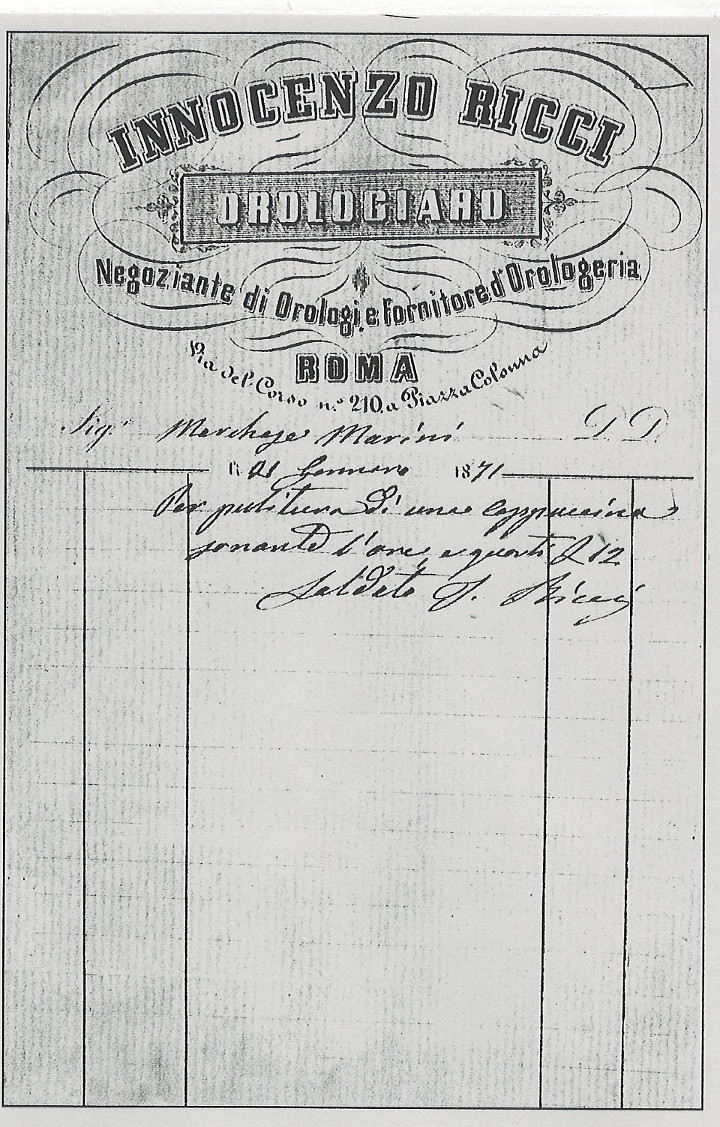 INNOCENZO RICCI
OROLOGIARO
Negoziante di Orologi e Fornitore d'Orologeria
ROMA
Via del Corso n.º 210. a Piazza Colonna
Sig.r Marchese Marini D. D.
21 Gennaro 1871
Per pulitura di una cappuccina
sonante l'ore e quarti £ 12
Saldato I. Ricci